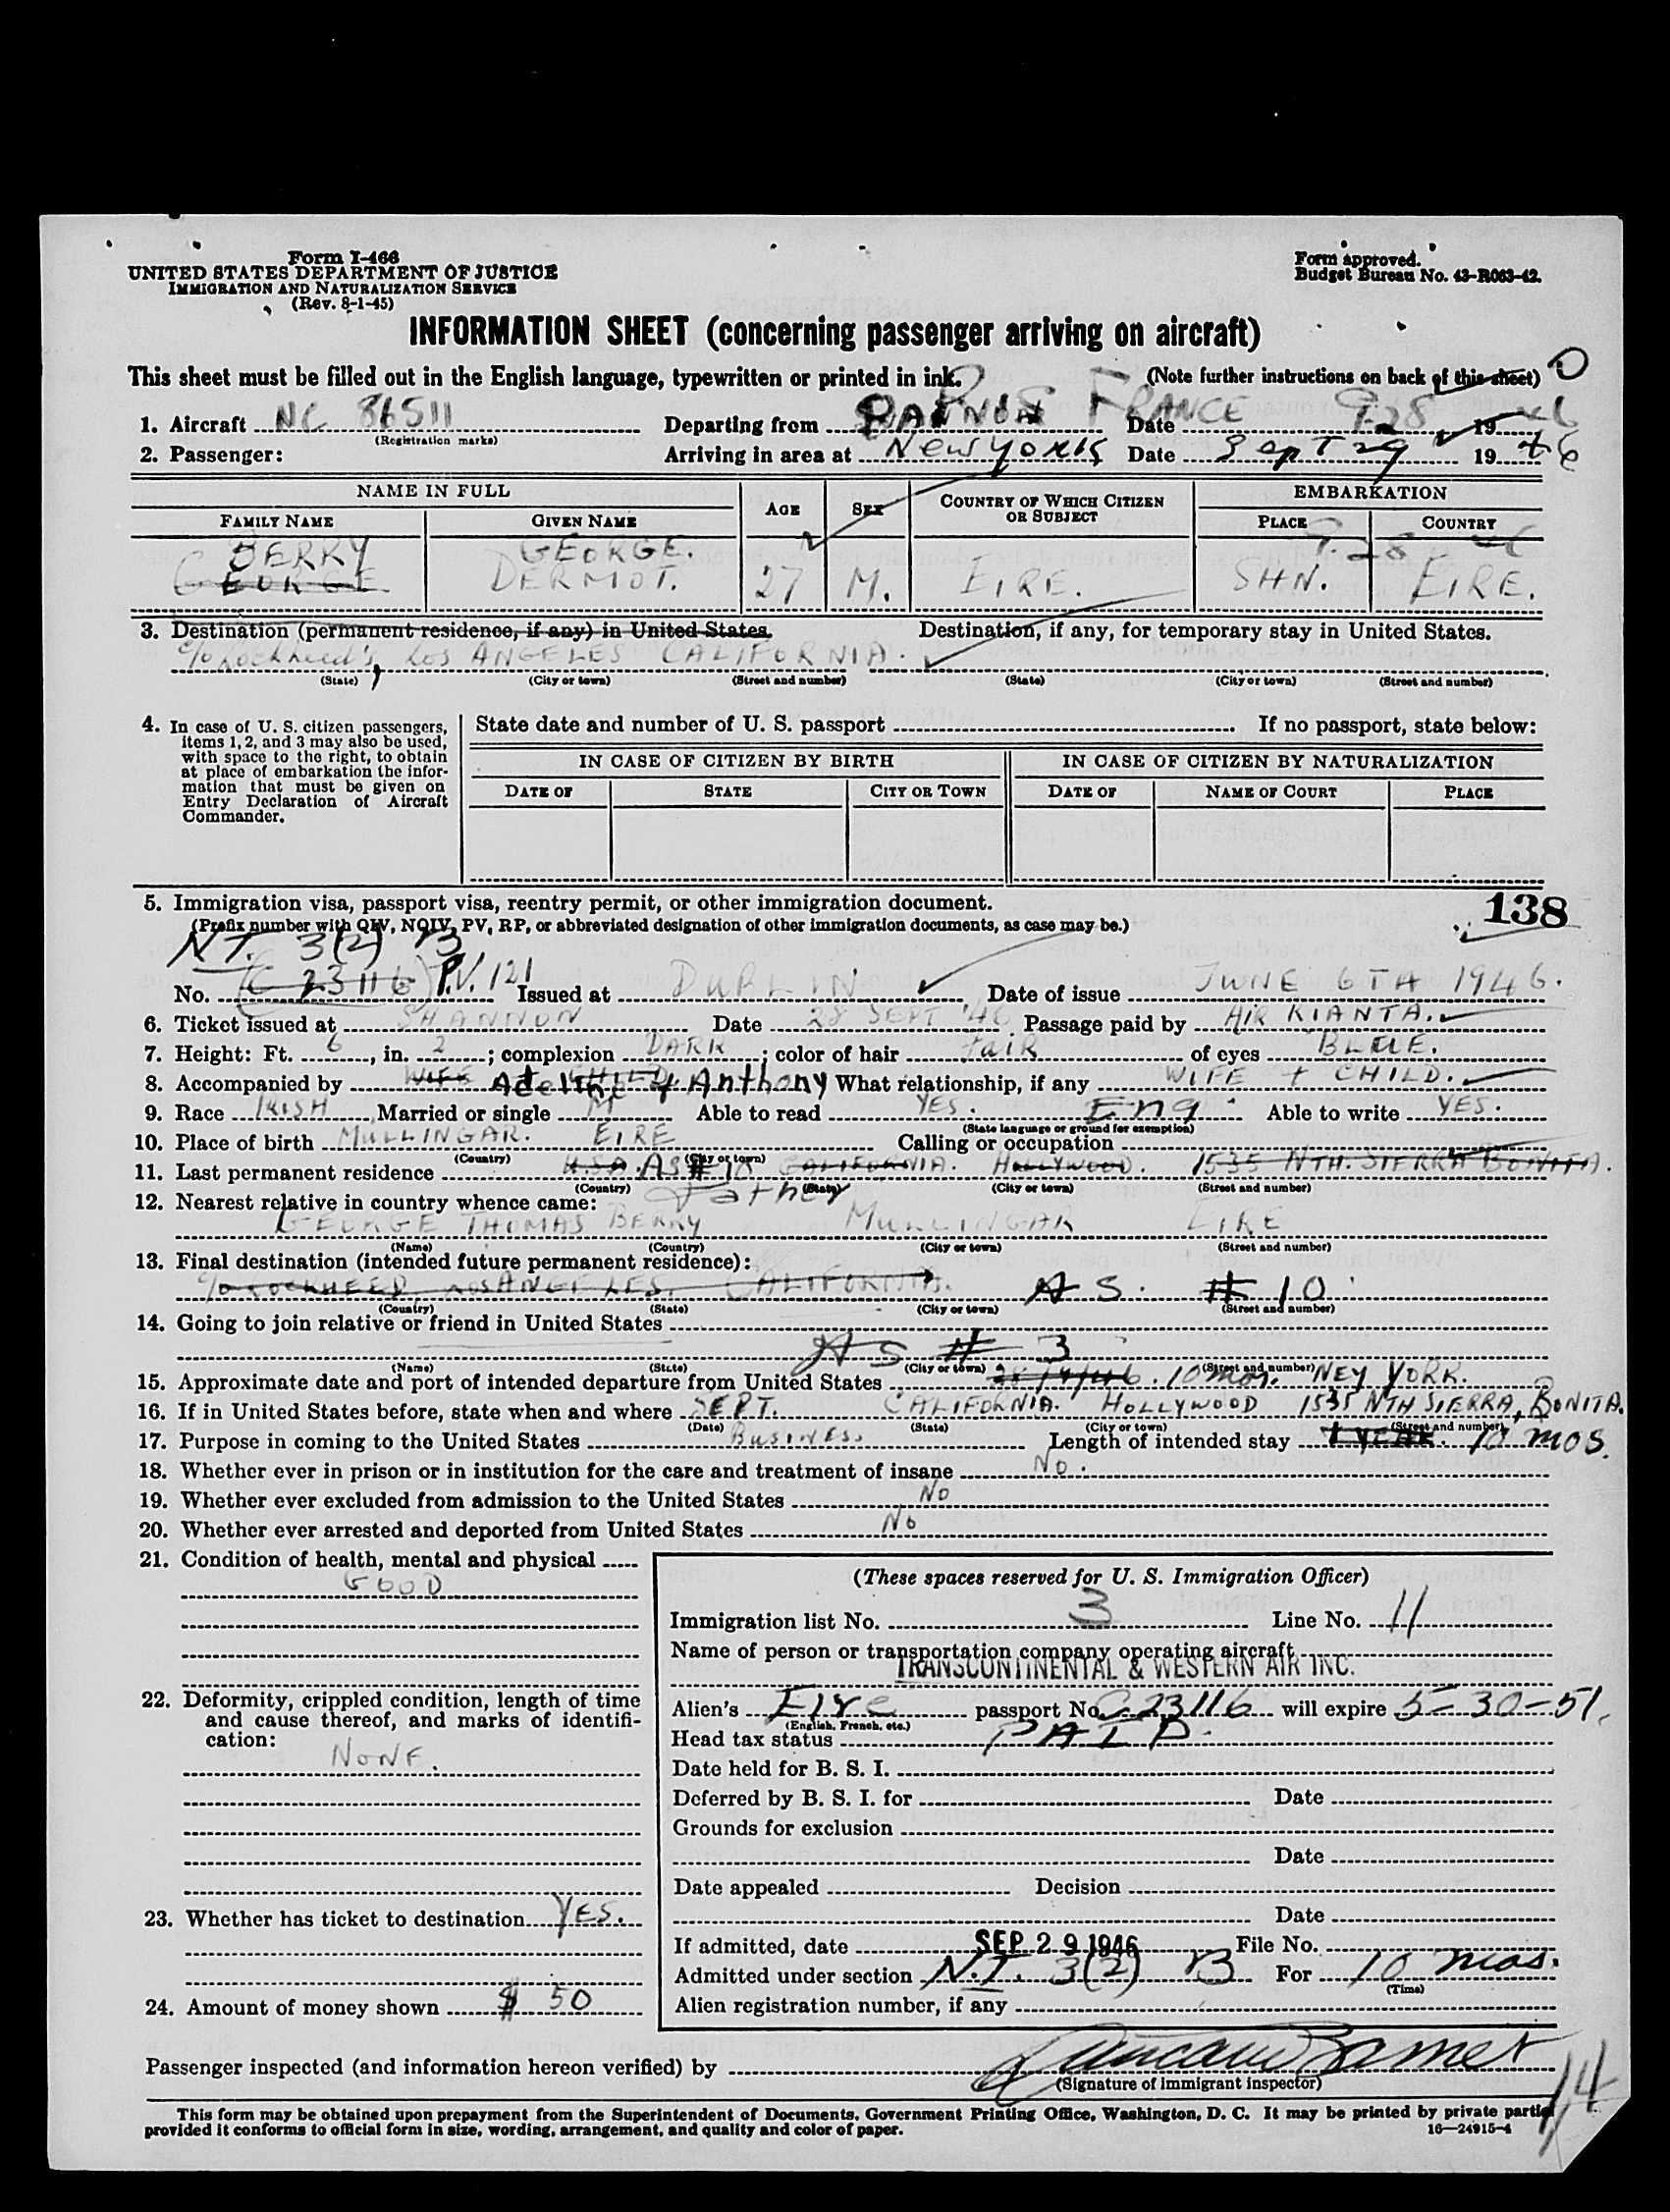 Form I-466
UNITED STATES DEPARTMENT OF JUSTICE
IMMIGRATION AND NATURALIZATION SERVICE
(Rev. 8-1-45)
Form approved.
Budget Bureau No. 43-R063-42.
INFORMATION SHEET (concerning passenger arriving on aircraft)
This sheet must be filled out in the English language, typewritten or printed in ink. (Note further instructions on back of this sheet)
1. Aircraft NC 86511 Departing from Paris FRANCE Date 9-28 1946
(Registration marks)
2. Passenger: Arriving in area at New York Date Sept 29 1946
NAME IN FULL AGE SEX COUNTRY OF WHICH CITIZEN OR SUBJECT EMBARKATION
FAMILY NAME GIVEN NAME PLACE COUNTRY
BERRY GEORGE. 9-28-46
GEORGE DERMOT. 27 M. EIRE. SHN. EIRE.
3. Destination (permanent residence, if any) in United States. Destination, if any, for temporary stay in United States.
c/o Lockheed's, LOS ANGELES CALIFORNIA.
(State) (City or town) (Street and number) (State) (City or town) (Street and number)
4. In case of U. S. citizen passengers, items 1, 2, and 3 may also be used, with space to the right, to obtain at place of embarkation the information that must be given on Entry Declaration of Aircraft Commander.
State date and number of U. S. passport If no passport, state below:
IN CASE OF CITIZEN BY BIRTH IN CASE OF CITIZEN BY NATURALIZATION
DATE OF STATE CITY OR TOWN DATE OF NAME OF COURT PLACE
5. Immigration visa, passport visa, reentry permit, or other immigration document. 138
(Prefix number with QIV, NQIV, PV, RP, or abbreviated designation of other immigration documents, as case may be.)
N.T. 3(2) B
No. (C 23116) P.V. 121 Issued at DUBLIN Date of issue JUNE 6TH 1946.
6. Ticket issued at SHANNON Date 28 SEPT '46 Passage paid by AIR RIANTA.
7. Height: Ft. 6, in. 2; complexion DARK; color of hair fair of eyes BLUE.
8. Accompanied by WIFE + CHILD + Anthony What relationship, if any WIFE + CHILD.
9. Race IRISH Married or single M Able to read YES. Eng Able to write YES.
(State language or ground for exemption)
10. Place of birth MULLINGAR. EIRE Calling or occupation
(Country) (City or town)
11. Last permanent residence U.S.A. AS # 10 CALIFORNIA. HOLLYWOOD. 1535 NTH. SIERRA BONITA.
(Country) (State) (City or town) (Street and number)
12. Nearest relative in country whence came: Father
GEORGE THOMAS BERRY MULLINGAR EIRE
(Name) (Country) (City or town) (Street and number)
13. Final destination (intended future permanent residence):
c/o LOCKHEED LOS ANGELES. CALIFORNIA. AS # 10
(Country) (State) (City or town) (Street and number)
14. Going to join relative or friend in United States
AS # 3
(Name) (State) (City or town) (Street and number)
15. Approximate date and port of intended departure from United States 10 mos. NEY YORK.
16. If in United States before, state when and where SEPT. CALIFORNIA. HOLLYWOOD 1535 NTH SIERRA, BONITA.
(Date) (State) (City or town) (Street and number)
17. Purpose in coming to the United States BUSINESS Length of intended stay 1 YEAR. 10 mos.
18. Whether ever in prison or in institution for the care and treatment of insane NO.
19. Whether ever excluded from admission to the United States NO
20. Whether ever arrested and deported from United States NO
21. Condition of health, mental and physical
GOOD
22. Deformity, crippled condition, length of time and cause thereof, and marks of identification:
NONE.
23. Whether has ticket to destination YES.
24. Amount of money shown $ 50
(These spaces reserved for U. S. Immigration Officer)
Immigration list No. 3 Line No. 11
Name of person or transportation company operating aircraft
TRANSCONTINENTAL & WESTERN AIR INC.
Alien's Eire passport No. C.23116 will expire 5-30-51.
(English, French, etc.)
Head tax status PAID.
Date held for B. S. I.
Deferred by B. S. I. for Date
Grounds for exclusion
Date
Date appealed Decision
Date
If admitted, date SEP 29 1946 File No.
Admitted under section N.T. 3(2) B For 10 mos.
(Time)
Alien registration number, if any
Passenger inspected (and information hereon verified) by
(Signature of immigrant inspector)
14
This form may be obtained upon prepayment from the Superintendent of Documents, Government Printing Office, Washington, D. C. It may be printed by private parties
provided it conforms to official form in size, wording, arrangement, and quality and color of paper.
16—24915-4